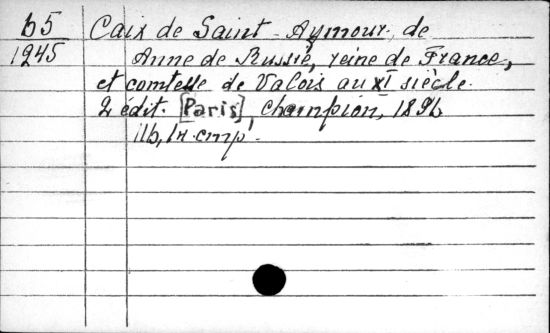 b5 Caix de Saint-Aymour, de
1245 Anne de Russie, reine de France,
et comtesse de Valois au XI siècle.
2 édit. [Paris], Champion, 1896
116, 1н. стр.